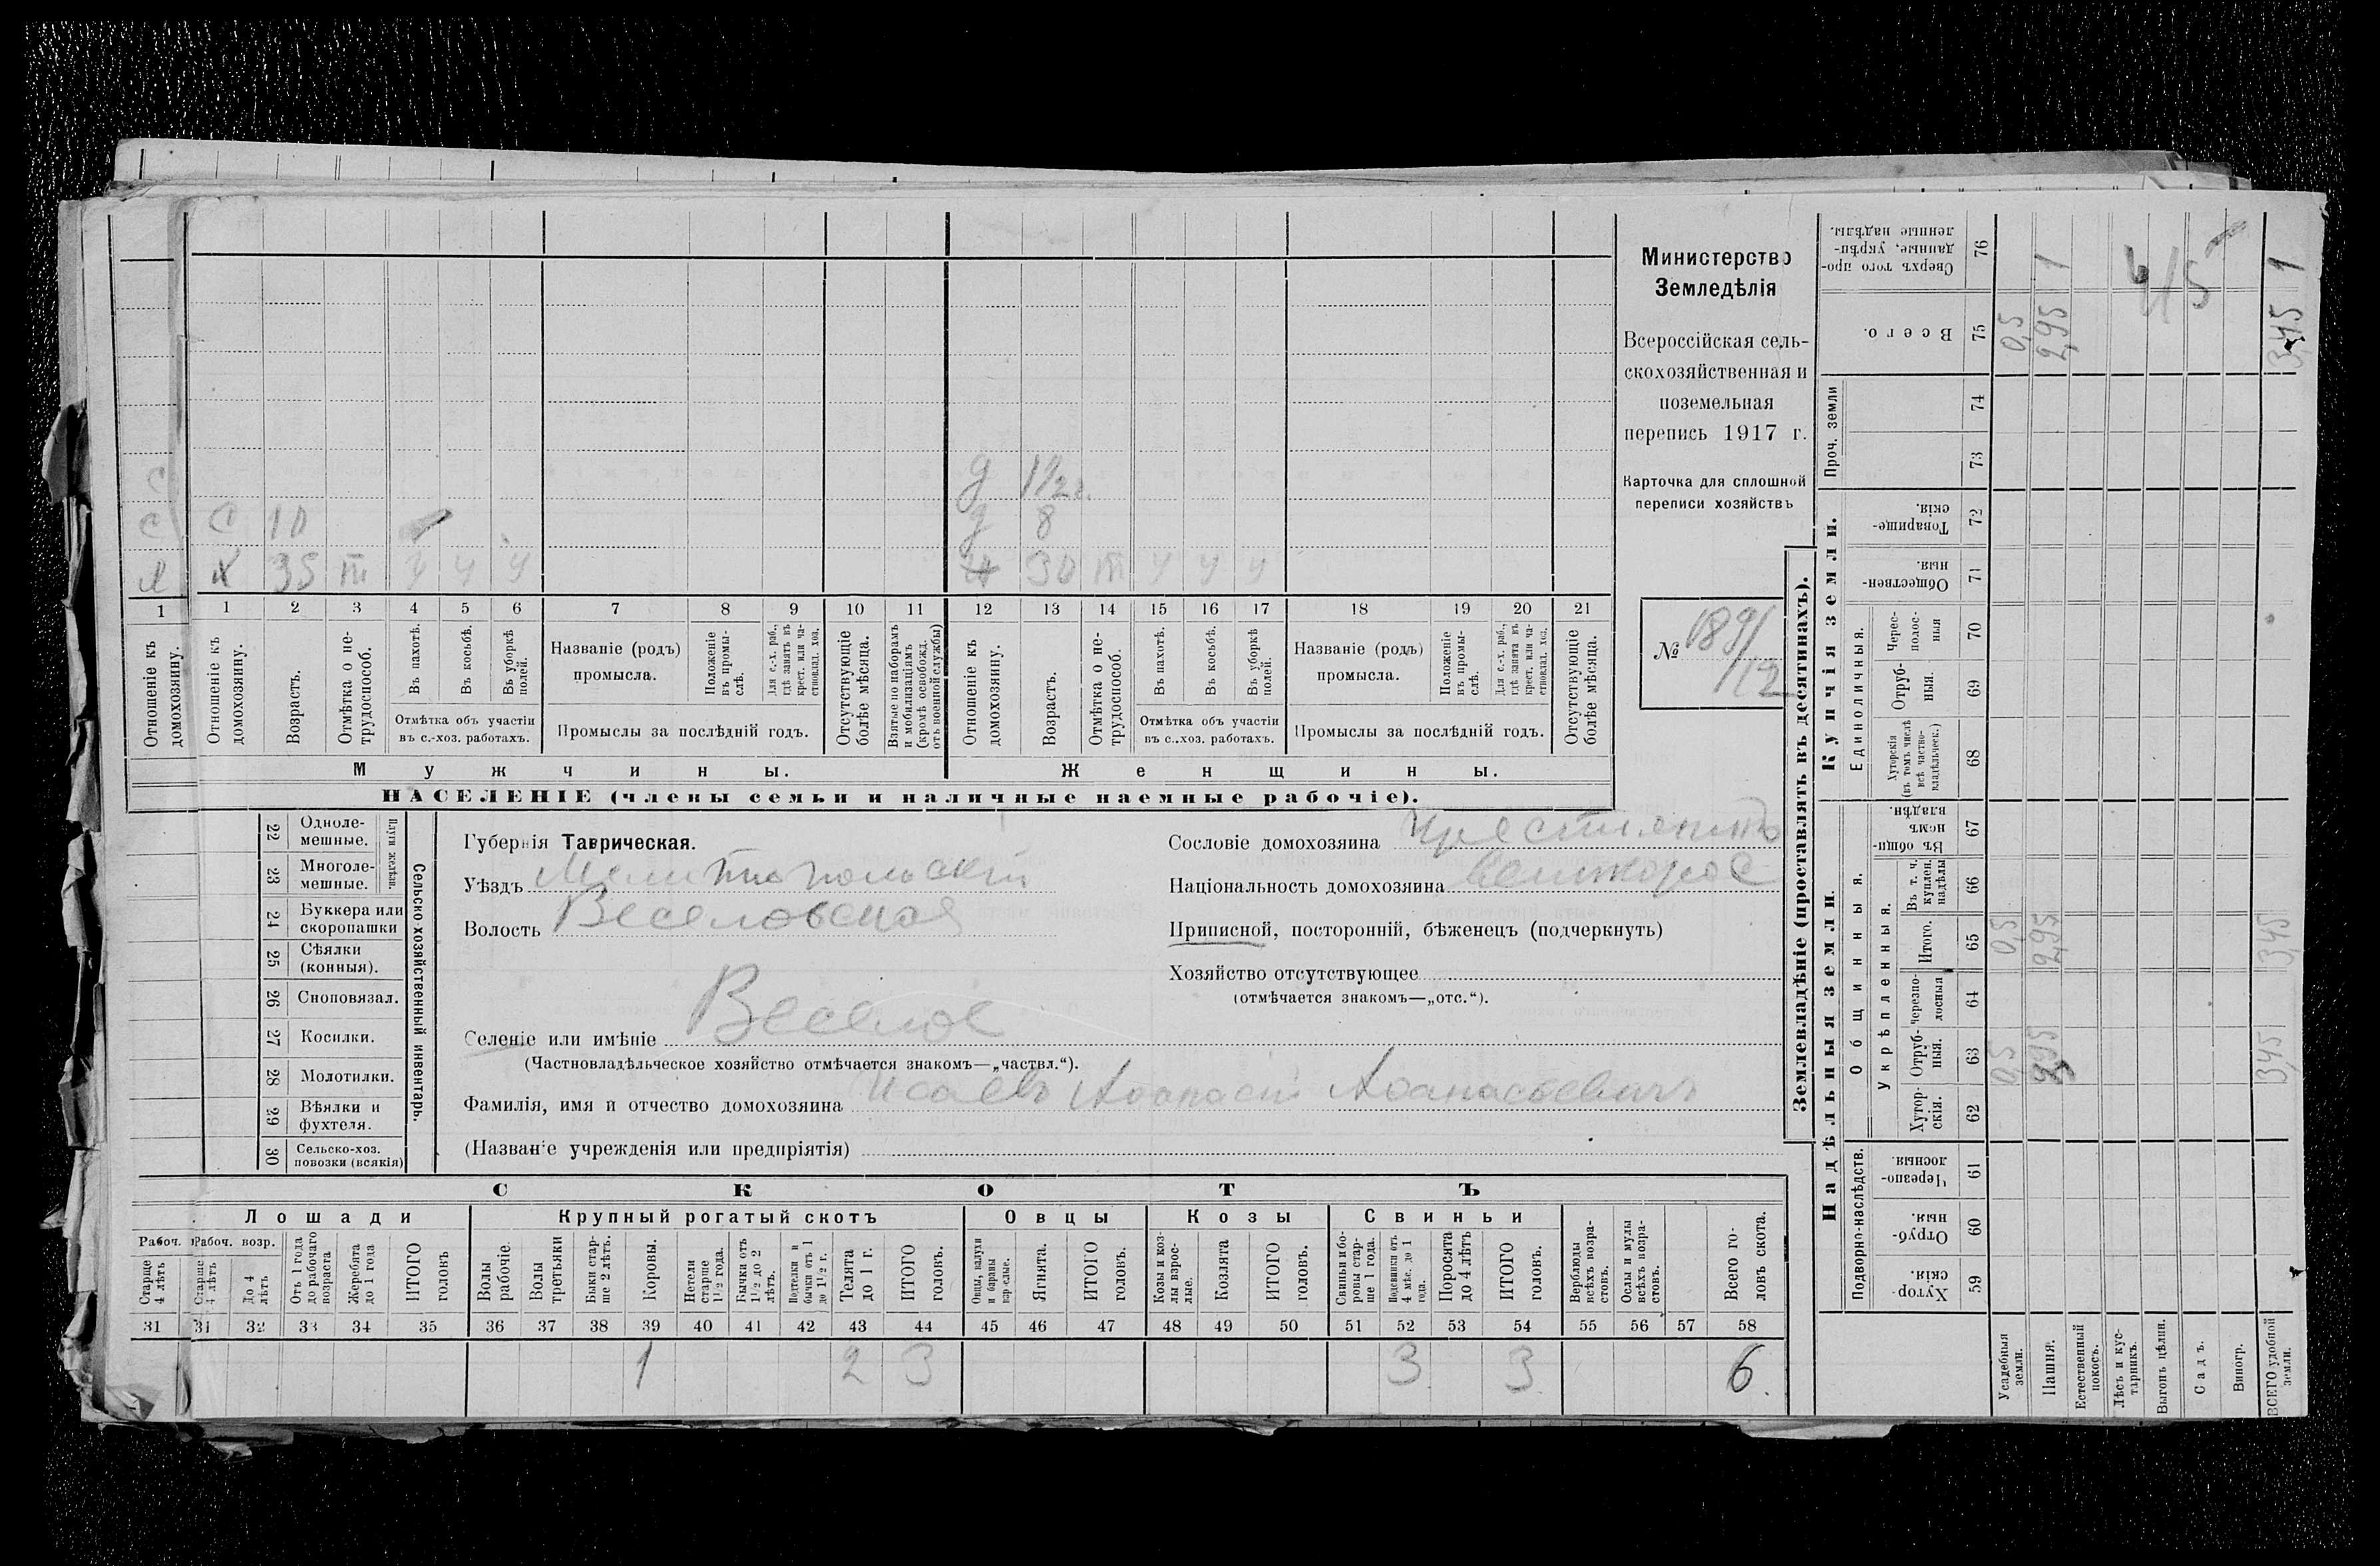 Министерство
Земледѣлія
Всероссійская сель-
скохозяйственная и
поземельная
перепись 1917 г.
Карточка для сплошной
переписи хозяйствъ
№ 189/12
д 1½ г.
С
С С 10 д 8
Х 35 т у у у 30 т у у у
1 1 2 3 4 5 6 7 8 9 10 11 12 13 14 15 16 17 18 19 20 21
Отношеніе къ домохозяину.
Отношеніе къ домохозяину.
Возрастъ.
Отмѣтка о не-трудоспособ.
Въ пахотѣ.
Въ косьбѣ.
Въ уборкѣ полей.
Отмѣтка объ участіи
въ с.-хоз. работахъ.
Названіе (родъ)
промысла.
Положеніе въ промы-слѣ.
Для с.-х. раб., гдѣ занятъ въ крест. или ча-стновлад. хоз.
Промыслы за послѣдній годъ.
Отсутствующіе болѣе мѣсяца.
Взятые по наборамъ и мобилизаціямъ (кромѣ освобожд. отъ военной службы)
Отношеніе къ домохозяину.
Возрастъ.
Отмѣтка о не-трудоспособ.
Въ пахотѣ.
Въ косьбѣ.
Въ уборкѣ полей.
Отмѣтка объ участіи
въ с.-хоз. работахъ.
Названіе (родъ)
промысла.
Положеніе въ промы-слѣ.
Для с.-х. раб., гдѣ занята въ крест. или ча-стновлад. хоз.
Промыслы за послѣдній годъ.
Отсутствующіе болѣе мѣсяца.
Мужчины. Женщины.
НАСЕЛЕНІЕ (члены семьи и наличные наемные рабочіе).
22 Одноле-мешные.
23 Многоле-мешные.
Плуги желѣзн.
24 Буккера или скоропашки
25 Сѣялки (конныя).
26 Сноповязал.
27 Косилки.
28 Молотилки.
29 Вѣялки и фухтеля.
30 Сельско-хоз. повозки (всякія)
Сельско-хозяйственный инвентарь.
Губернія Таврическая.
Уѣздъ Мелитопольскій
Волость Веселовская
Селеніе или имѣніе Веселое
(Частновладѣльческое хозяйство отмѣчается знакомъ—„частвл.“).
Фамилія, имя и отчество домохозяина Исаевъ Афанасій Афанасьевичъ
(Названіе учрежденія или предпріятія)
Сословіе домохозяина Крестьянинъ
Національность домохозяина великоросс
Приписной, посторонній, бѣженецъ (подчеркнуть)
Хозяйство отсутствующее
(отмѣчается знакомъ—„отс.“).
СКОТЪ
Лошади Крупный рогатый скотъ Овцы Козы Свиньи
Рабоч. Рабоч. возр.
Старше 4 лѣтъ
Старше 4 лѣтъ
До 4 лѣтъ
Отъ 1 года до рабочаго возраста
Жеребята до 1 года
ИТОГО головъ
Волы рабочіе.
Волы третьяки
Быки стар-ше 2 лѣтъ.
Коровы.
Нетели старше 1½ года.
Бычки отъ 1½ до 2 лѣтъ.
Подтелки и бычки отъ 1 до 1½ г.
Телята до 1 г.
ИТОГО головъ.
Овцы, валухи и бараны взрослые.
Ягнята.
ИТОГО головъ.
Козы и коз-лы взрос-лые.
Козлята
ИТОГО головъ.
Свиньи и бо-ровы стар-ше 1 года.
Подсвинки отъ 4 мѣс. до 1 года.
Поросята до 4 лѣтъ
ИТОГО головъ.
Верблюды всѣхъ возра-стовъ.
Ослы и мулы всѣхъ возра-стовъ.
Всего го-ловъ скота.
31 31 32 33 34 35 36 37 38 39 40 41 42 43 44 45 46 47 48 49 50 51 52 53 54 55 56 57 58
1 2 3 3 3 6
Землевладѣніе (проставлять въ десятинахъ).
Надѣльныя земли. Купчія земли. Проч. земли
Подворно-наслѣдств.
Общинныя.
Укрѣпленныя.
Единоличныя.
Хутор-скія. 59
Отруб-ныя. 60
Черезпо-лосныя. 61
Хутор-скія. 62
Отруб-ныя. 63
Черезпо-лосныя 64
Итого. 65
Въ т. ч. куплен. надѣлы 66
Въ общин-номъ владѣн. 67
Хуторскія (въ томъ числѣ всѣ частно-владѣльческ.) 68
Отруб-ныя. 69
Черес-полос-ныя 70
Обществен-ныя. 71
Товарище-скія. 72
73
74
Всего. 75
Сверхъ того про-данные, укрѣп-ленные надѣлы. 76
Усадебныя земли. 0,5 0,5 0,5
Пашня. 2,95 2,95 1
Естественный покосъ.
Лѣсъ и кус-тарникъ.
Выгонъ цѣлин.
Садъ.
Виногр.
ВСЕГО удобной земли. 3,45 3,45 3,45 1